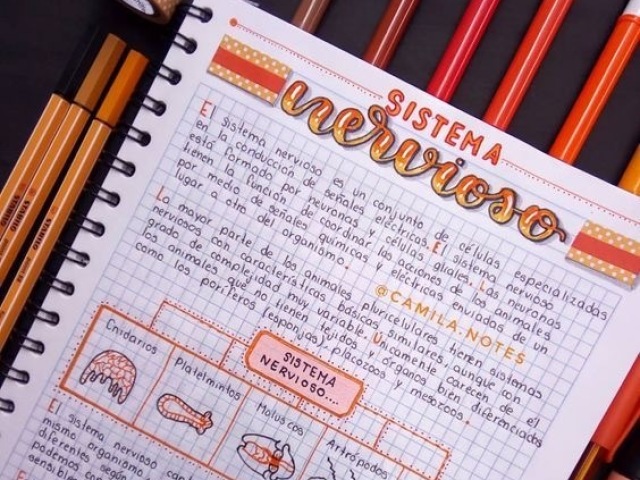 SISTEMA
nervioso
El Sistema nervioso es un conjunto de células especializadas
en la conducción de señales eléctricas. El sistema nervioso
está formado por neuronas y células gliales. Las neuronas
tienen la función de coordinar las acciones de los animales
por medio de señales químicas y eléctricas enviadas de un
lugar a otro del organismo.
@CAMILA.NOTES
La mayor parte de los animales pluricelulares tienen sistemas
nerviosos con características básicas similares, aunque con
grado de complejidad muy variable. Únicamente carecen de él
los animales que no tienen tejidos y órganos bien diferenciados
como los poríferos (esponjas), placozoos y mesozoos.
SISTEMA
NERVIOSO....
Cnidarios
Platelmintos
Moluscos
Artrópodos
El Sistema nervioso
mismo organismo
diferentes según
podemos
STABILO
STABILO
STABILO